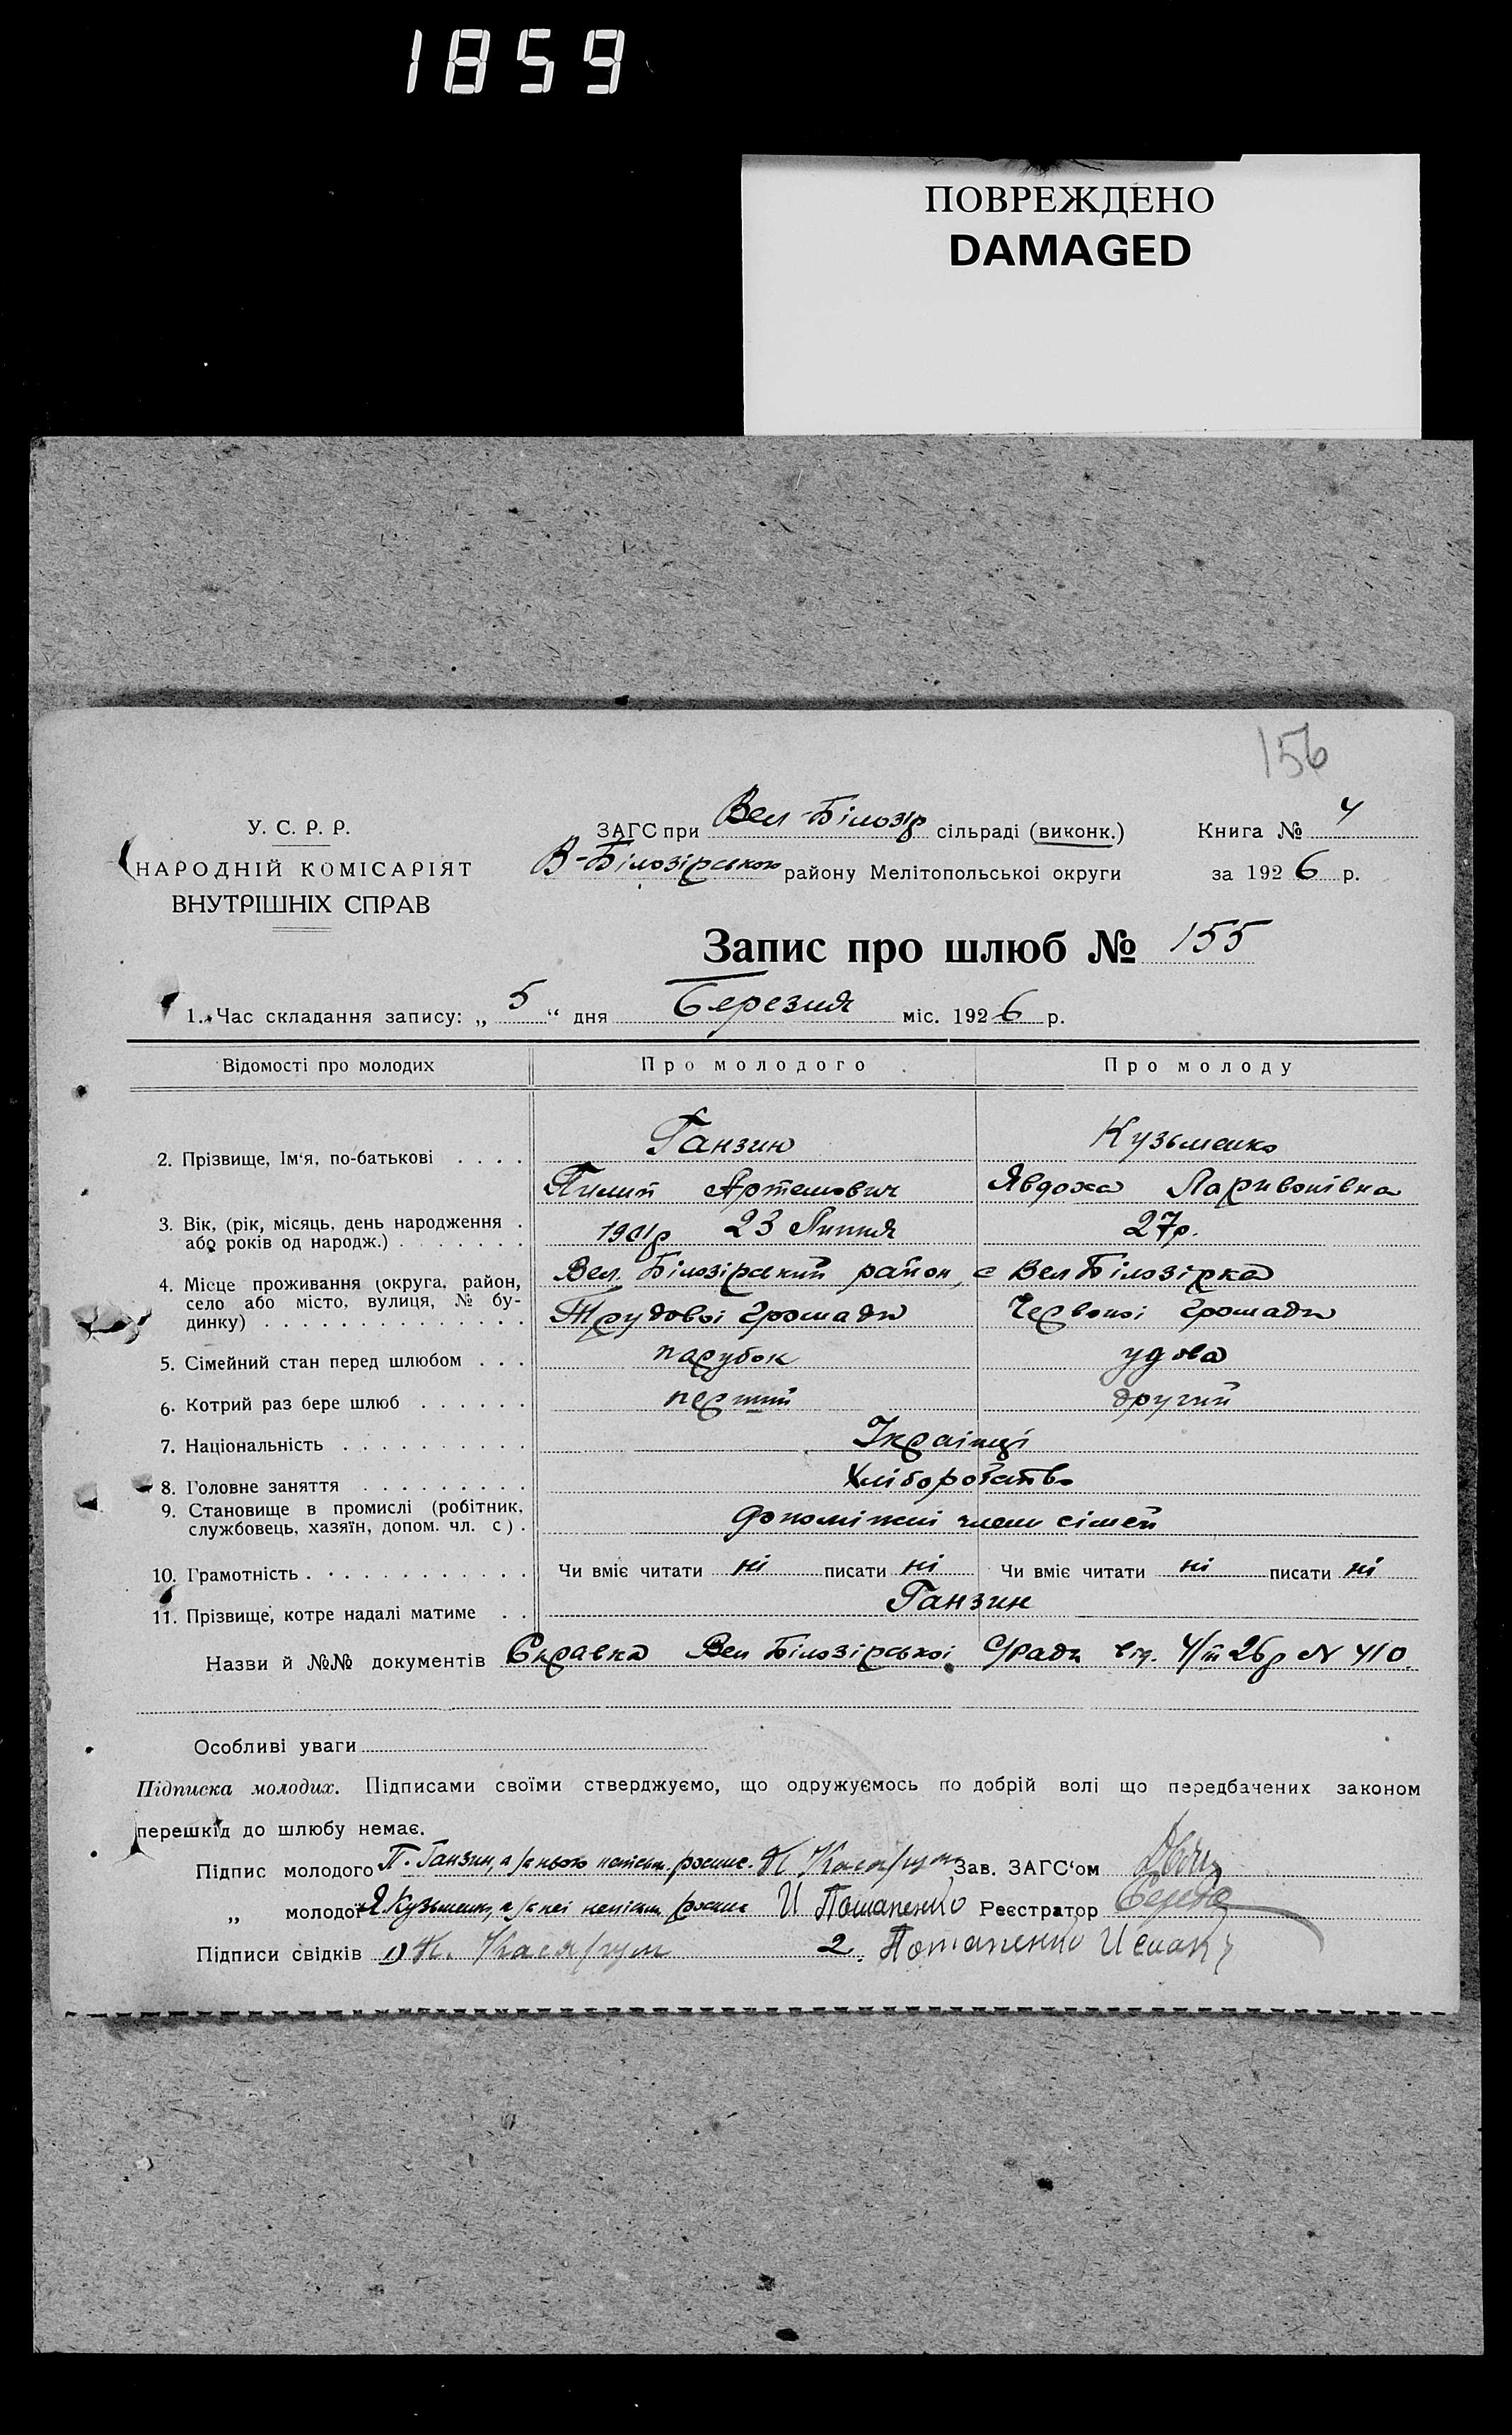 1859
ПОВРЕЖДЕНО
DAMAGED
156
У. С. Р. Р.
НАРОДНІЙ КОМІСАРІЯТ
ВНУТРІШНІХ СПРАВ
ЗАГС при Вел-Білозір сільраді (виконк.) Книга № 4
В-Білозірського району Мелітопольської округи за 1926 р.
Запис про шлюб № 155
1. Час складання запису: „ 5 “ дня Березня міс. 1926 р.
Відомості про молодих Про молодого Про молоду
2. Прізвище, Ім‘я, по-батькові . . . . Ганзин Кузьменко
Пилип Артемович Явдоха Ларивонівна
3. Вік, (рік, місяць, день народження .
або років од народж.) . . . . . . . 1901р 23 Липня 27р.
4. Місце проживання (округа, район, Вел. Білозірський район, с Вел Білозірка
село або місто, вулиця, № бу-
динку) . . . . . . . . . . . . . . Трудової громади Червоної громади
5. Сімейний стан перед шлюбом . . . парубок удова
6. Котрий раз бере шлюб . . . . . . перший другий
7. Національність . . . . . . . . . . Українці
8. Головне заняття . . . . . . . . . Хліборобство
9. Становище в промислі (робітник,
службовець, хазяїн, допом. чл. с) . допоміжні члени сімей
10. Грамотність . . . . . . . . . . . Чи вміє читати ні писати ні Чи вміє читати ні писати ні
11. Прізвище, котре надалі матиме . . Ганзин
Назви й №№ документів Справка Вел Білозірської С/ради від. 4/III 26р № 410.
Особливі уваги
Підписка молодих. Підписами своїми стверджуємо, що одружуємось по добрій волі що передбачених законом
перешкід до шлюбу немає.
Підпис молодого П. Ганзин, а за нього Зав. ЗАГС‘ом
„ молодої Я Кузьменко, а за неї И Потапенко Реєстратор Середа
Підписи свідків 1) 2. Потапенко